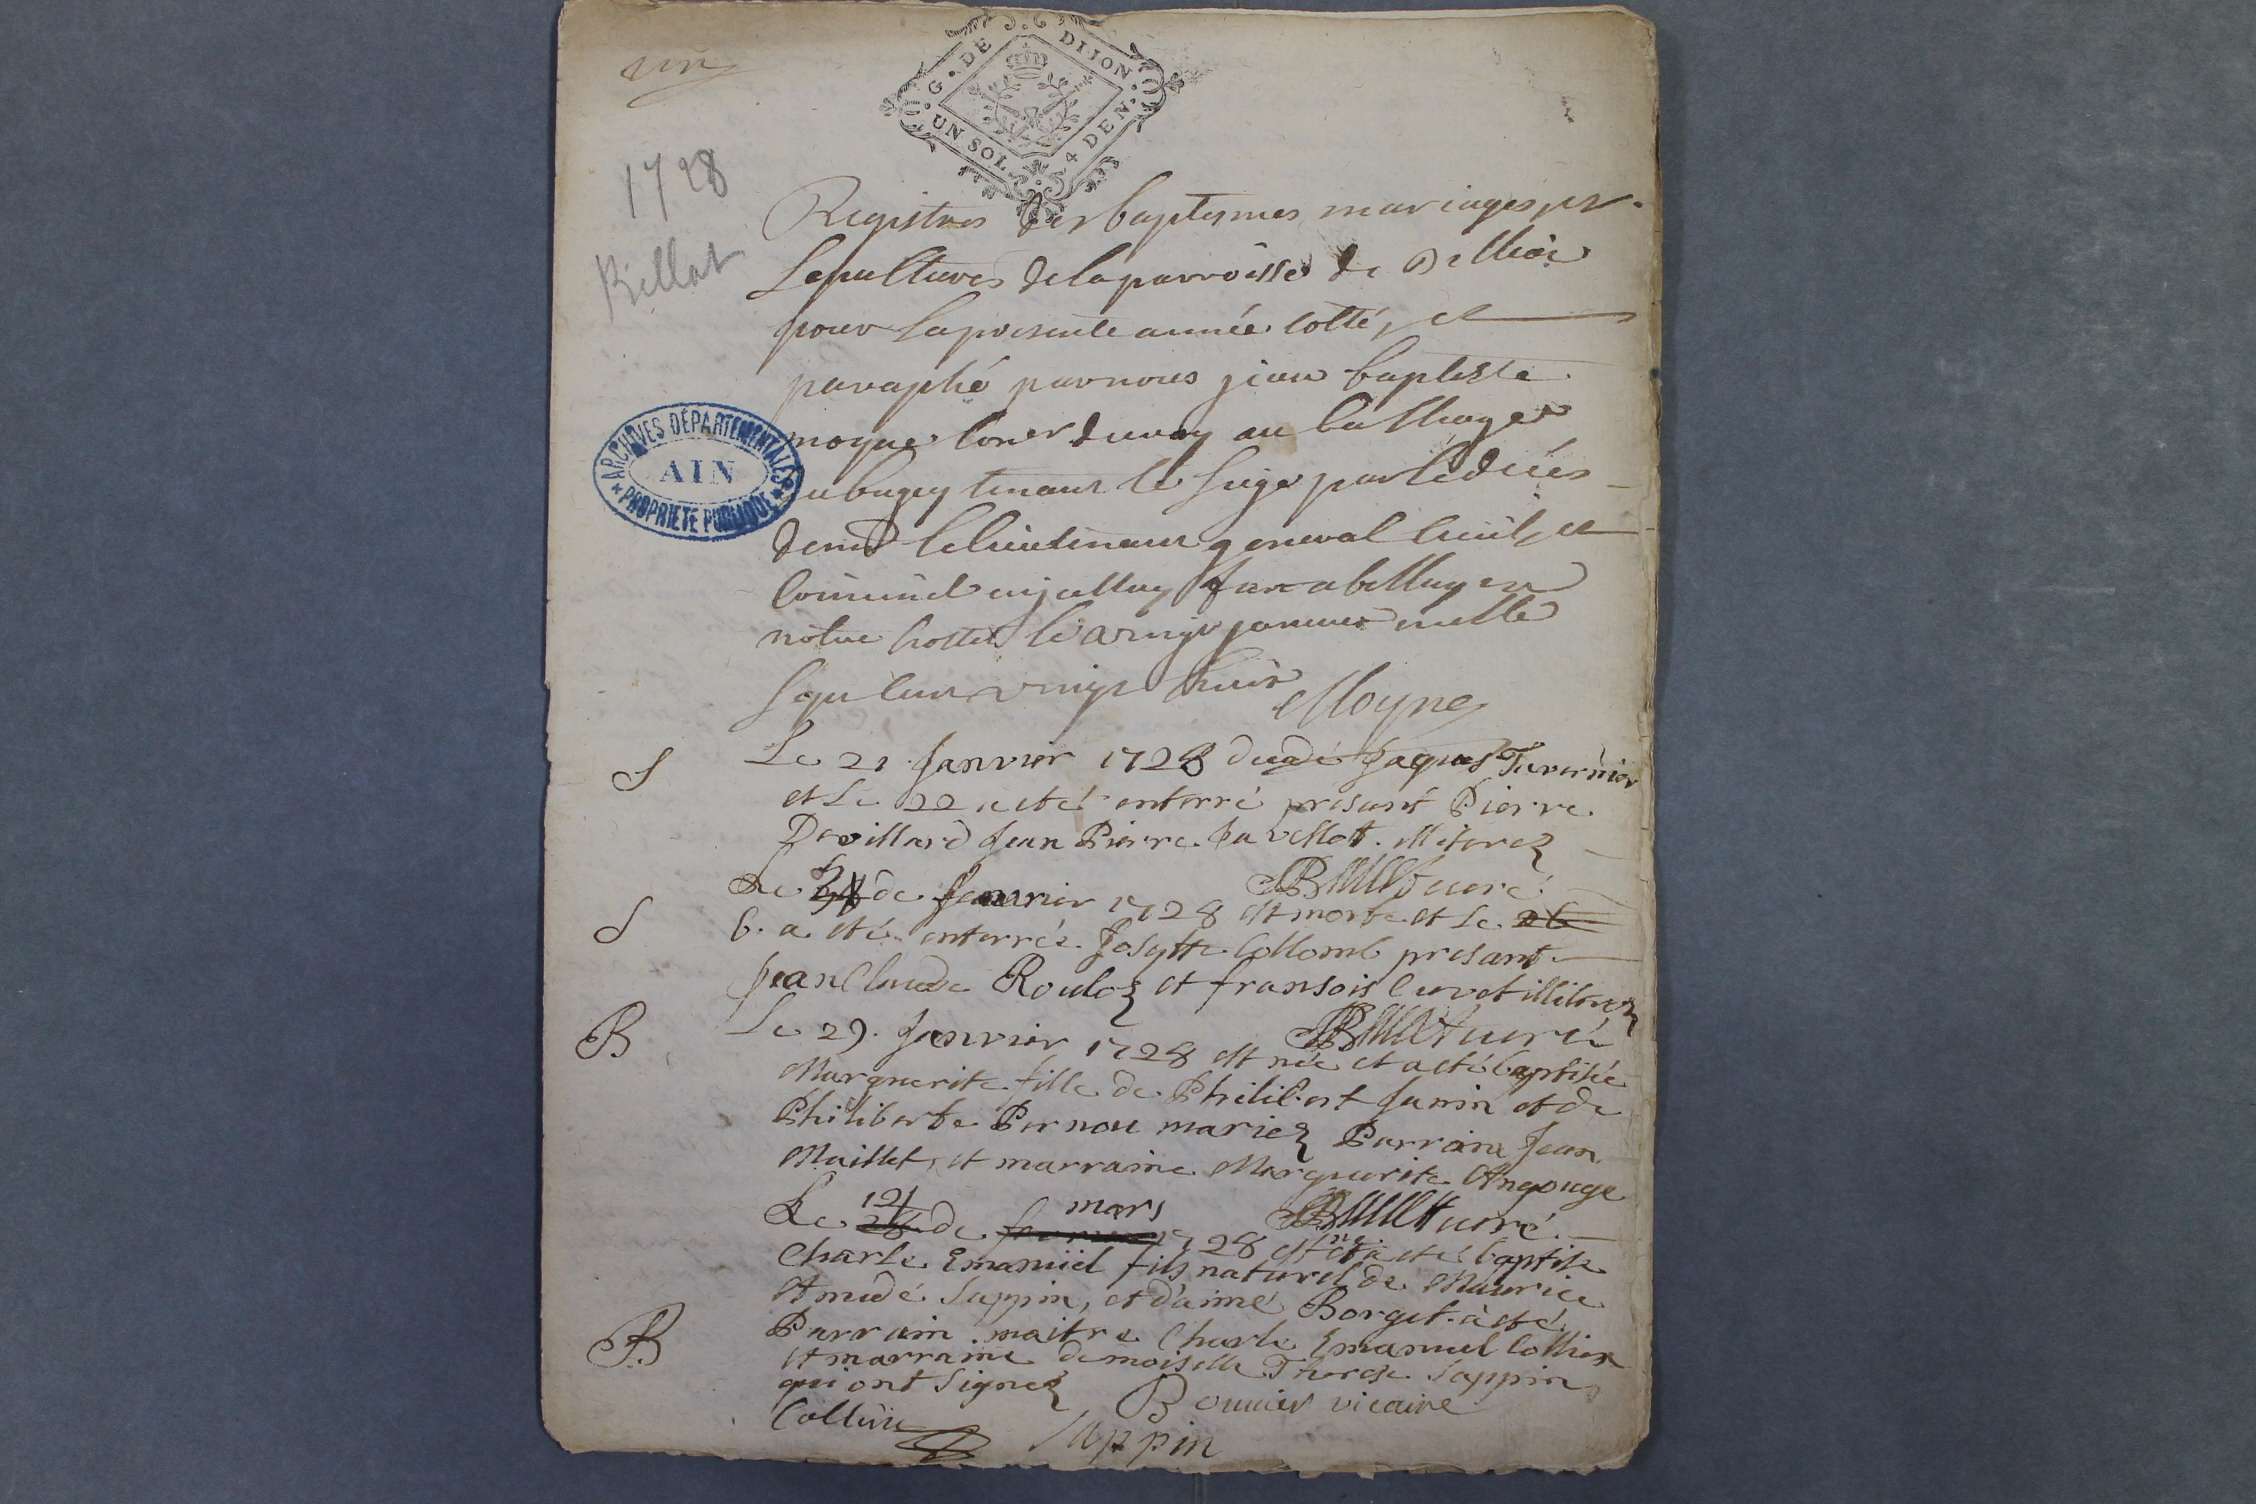 un
G. DE DIJON.
UN SOL 4 DEN.
1728
Billiat
Registres des baptesmes mariages et
sepultures de la parroisse de Billia
pour la presente année cotté, et
paraphé par nous jean baptiste
moyne con.er du roy au balliage
du bugey tenant le siege par le deces
de mr le lieutenant general civil, et
criminel en
notre hostel le janvier mille
sept cent vingt huit
Moyne
ARCHIVES DÉPARTEMENTALES
AIN
PROPRIÉTÉ PUBLIQUE
S
Le 21 Janvier 1728 decedé Jaques Tavernier
et Le 22 a eté enterré present Pierre
Devillard Jean Pierre Illiterez
curé
S
Le de Janvrier 1728 est morte et Le
6. a eté enterrée Josepte Collomb present
Jean Claude Roulez et fransois Curvet illiterez
curé
B
Le 29. Janvier 1728 est née et a eté baptisée
Marguerite fille de Philibert Janin et de
Philiberte Pernou mariez Parrain Jean
Maillet, et marraine Marguerite Angouge
curé
Le 12 de mars 1728 est né et a eté baptisé
Charle Emanüel fils naturel de Maurice
Amedé Sappin, et d'aimé Borget. à eté
B
Parrain. maitre Charle Emanuel Collier
et marraine demoiselle Therese Sappin
qui ont Signez Bouvier vicaire
Sappin